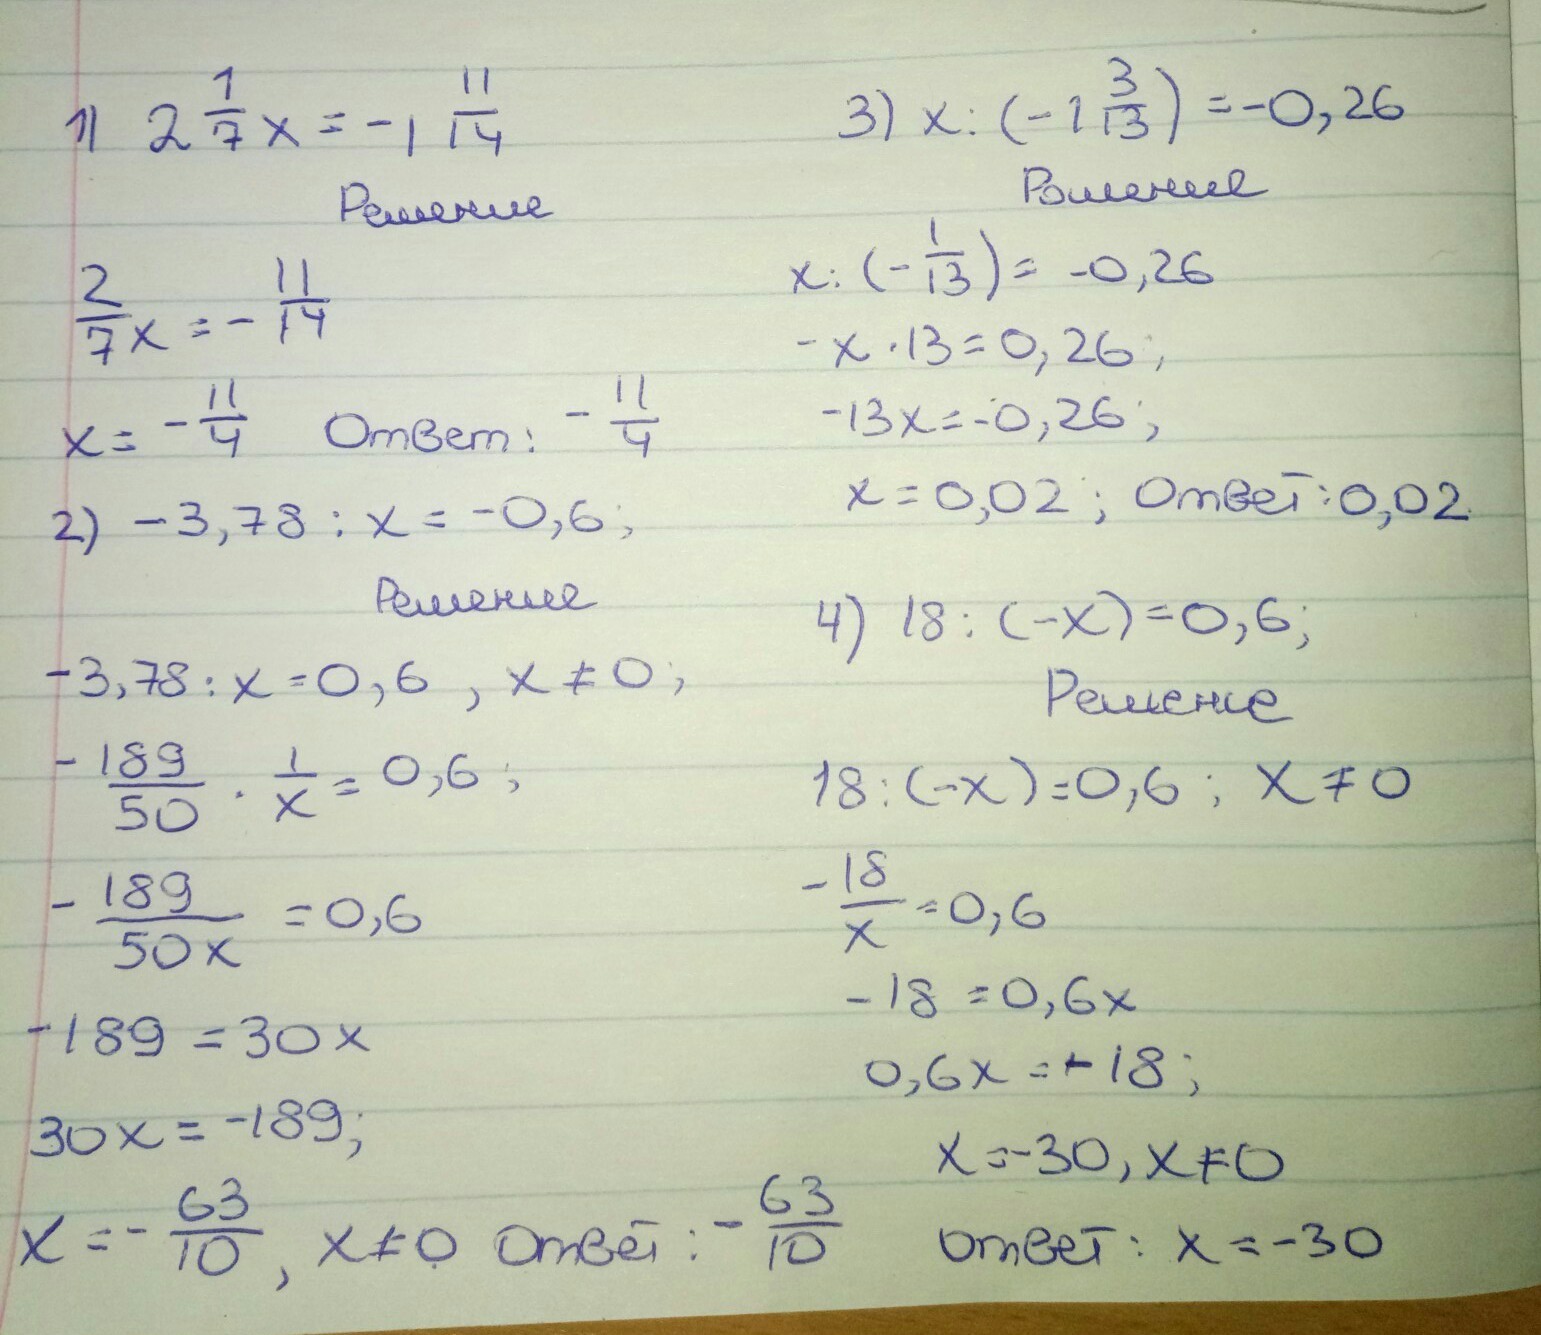 1) 2 1/7 x = -1 11/14
Решение
2/7 x = - 11/14
x = - 11/4 Ответ: - 11/4
2) -3,78 : x = -0,6;
Решение
-3,78 : x = 0,6 , x ≠ 0;
- 189/50 · 1/x = 0,6;
- 189/50x = 0,6
-189 = 30x
30x = -189;
x = - 63/10, x ≠ 0 Ответ: - 63/10
3) x : (-1 3/13) = -0,26
Решение
x : (- 1/13) = -0,26
-x · 13 = 0,26;
-13x = -0,26;
x = 0,02; Ответ: 0,02
4) 18 : (-x) = 0,6;
Решение
18 : (-x) = 0,6; x ≠ 0
- 18/x = 0,6
-18 = 0,6x
0,6x = -18;
x = -30, x ≠ 0
Ответ: x = -30